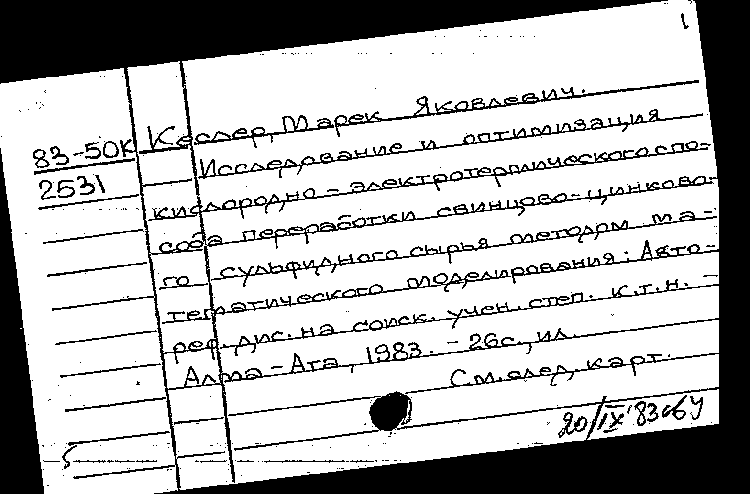 1
83-50К Кеслер, Марек Яковлевич.
2531 Исследование и оптимизация
кислородно-электротермического спо-
соба переработки свинцово-цинково-
го сульфидного сырья методом ма-
тематического моделирования: Авто-
реф. дис. на соиск. учен. степ. к.т.н. -
Алма-Ата, 1983. - 26с., ил.
См. след. карт.
20/IX 83